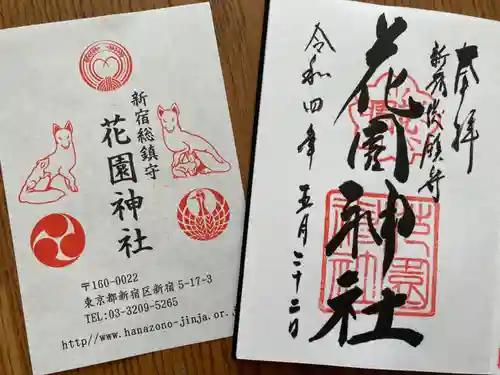 新宿総鎮守
花園神社
〒160-0022
東京都新宿区新宿5-17-3
TEL:03-3209-5265
http//www.hanazono-jinja.or.j
奉拝
新宿総鎮守
花園神社
花園
神社
令和四年
五月二十二日